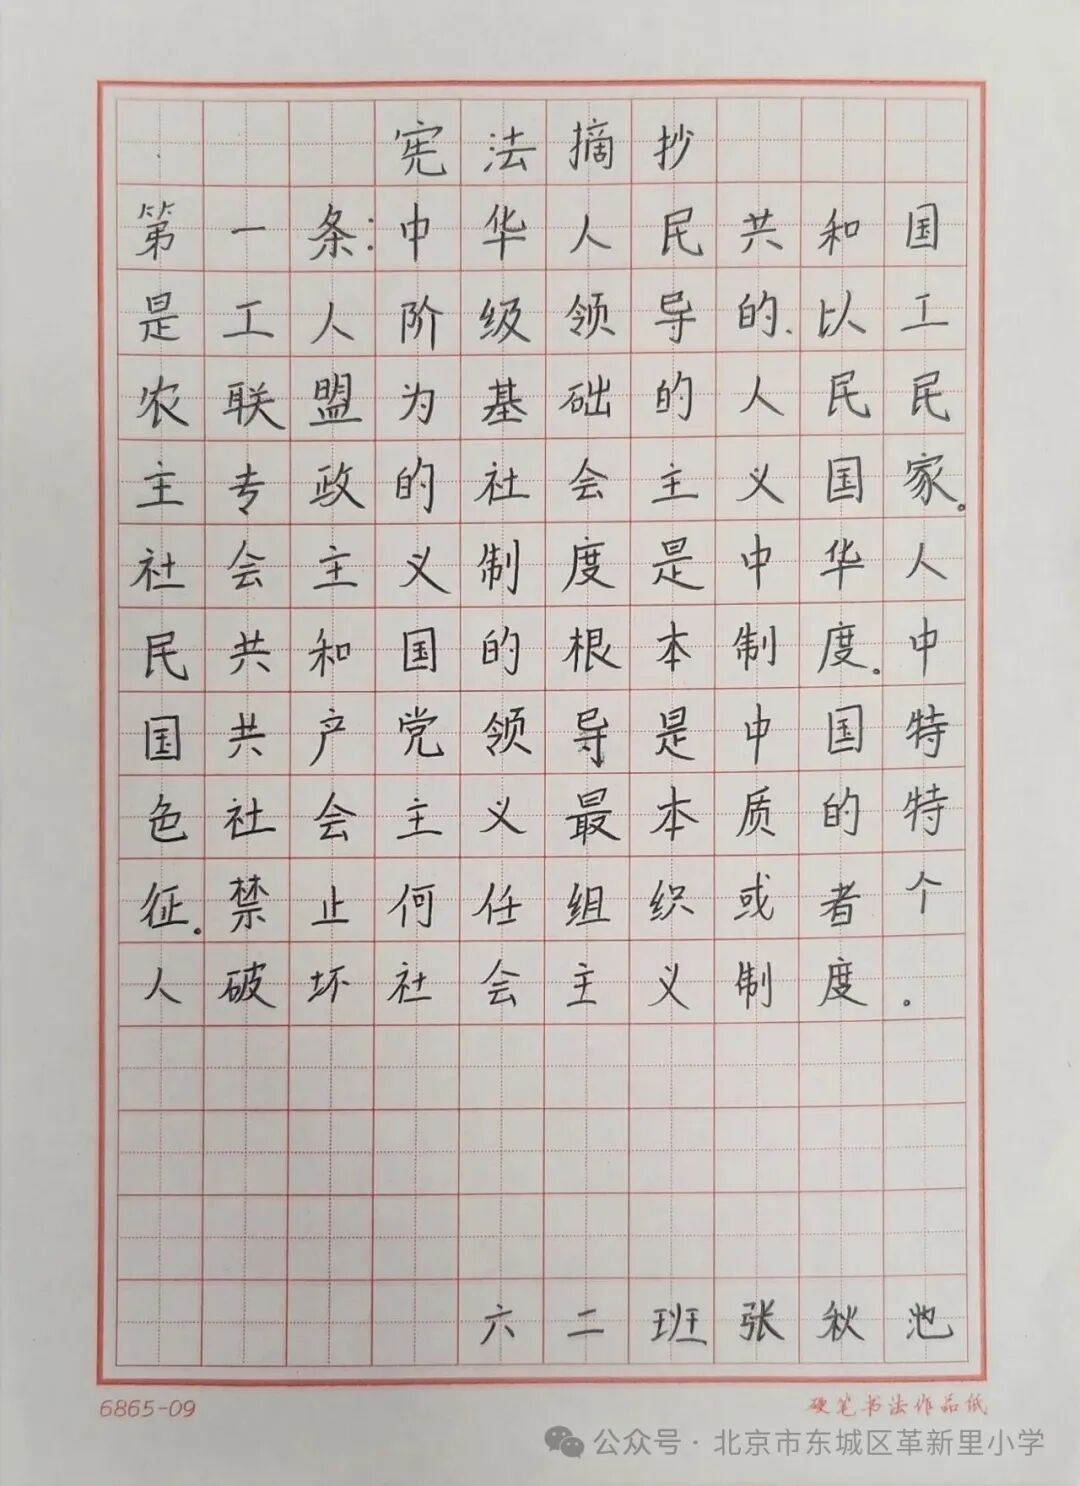 宪法摘抄
第一条:中华人民共和国
是工人阶级领导的、以工
农联盟为基础的人民民
主专政的社会主义国家。
社会主义制度是中华人
民共和国的根本制度。中
国共产党领导是中国特
色社会主义最本质的特
征。禁止何任组织或者个
人破坏社会主义制度。
六二班张秋池
6865-09
硬笔书法作品纸
公众号·北京市东城区革新里小学